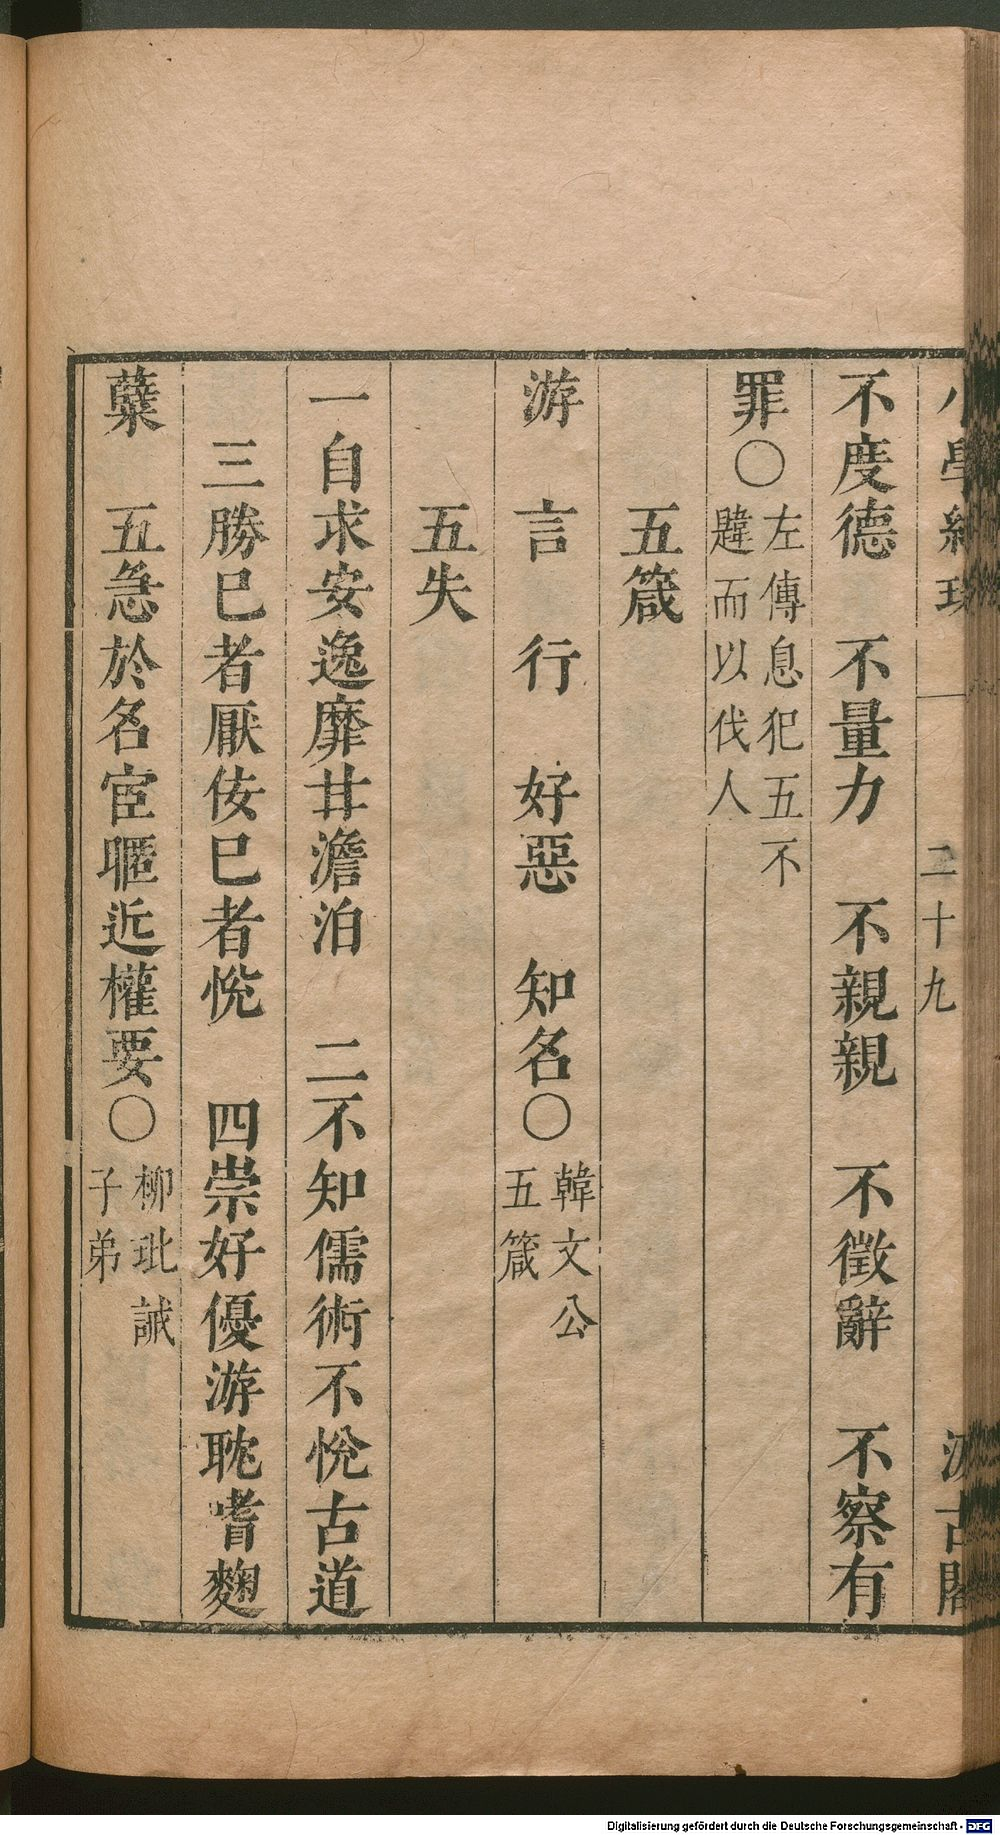 小學紺珠 二十九 汲古閣
不度德 不量力 不親親 不徵辭 不察有
罪〇左傳息犯五不
韙而以伐人
五箴
游 言 行 好惡 知名〇韓文公
五箴
五失
一自求安逸靡甘澹泊 二不知儒術不悅古道
三勝己者厭佞己者悅 四崇好優游耽嗜麴
糵 五急於名宦暱近權要〇柳玭誡
子弟
Digitalisierung gefördert durch die Deutsche Forschungsgemeinschaft - DFG